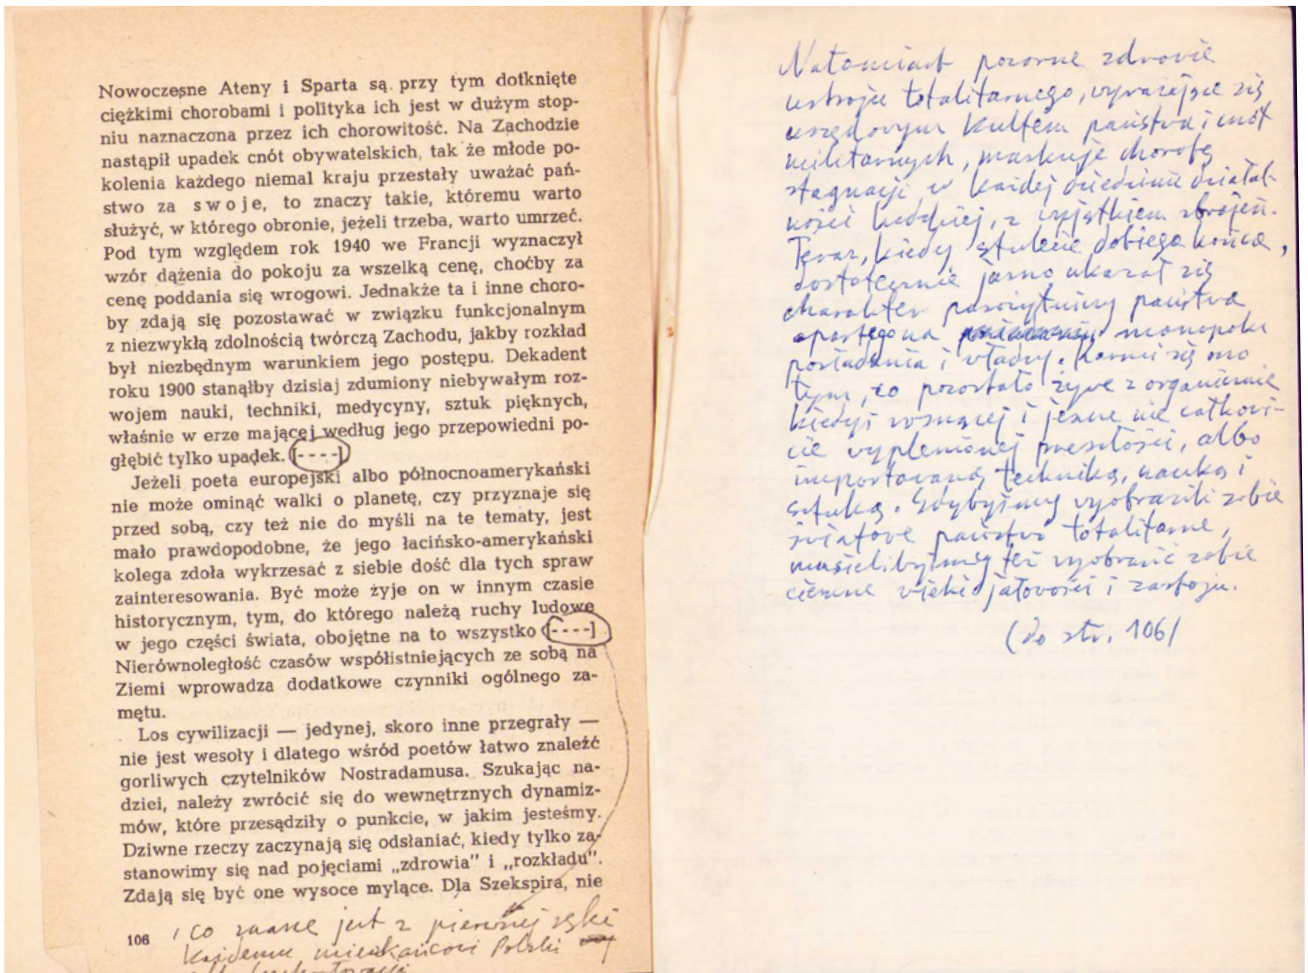 Nowoczesne Ateny i Sparta są przy tym dotknięte
ciężkimi chorobami i polityka ich jest w dużym stop-
niu naznaczona przez ich chorowitość. Na Zachodzie
nastąpił upadek cnót obywatelskich, tak że młode po-
kolenia każdego niemal kraju przestały uważać pań-
stwo za swoje, to znaczy takie, któremu warto
służyć, w którego obronie, jeżeli trzeba, warto umrzeć.
Pod tym względem rok 1940 we Francji wyznaczył
wzór dążenia do pokoju za wszelką cenę, choćby za
cenę poddania się wrogowi. Jednakże ta i inne choro-
by zdają się pozostawać w związku funkcjonalnym
z niezwykłą zdolnością twórczą Zachodu, jakby rozkład
był niezbędnym warunkiem jego postępu. Dekadent
roku 1900 stanąłby dzisiaj zdumiony niebywałym roz-
wojem nauki, techniki, medycyny, sztuk pięknych,
właśnie w erze mającej według jego przepowiedni po-
głębić tylko upadek. [----]
Jeżeli poeta europejski albo północnoamerykański
nie może ominąć walki o planetę, czy przyznaje się
przed sobą, czy też nie do myśli na te tematy, jest
mało prawdopodobne, że jego łacińsko-amerykański
kolega zdoła wykrzesać z siebie dość dla tych spraw
zainteresowania. Być może żyje on w innym czasie
historycznym, tym, do którego należą ruchy ludowe
w jego części świata, obojętne na to wszystko [----]
Nierównoległość czasów współistniejących ze sobą na
Ziemi wprowadza dodatkowe czynniki ogólnego za-
mętu.
Los cywilizacji — jedynej, skoro inne przegrały —
nie jest wesoły i dlatego wśród poetów łatwo znaleźć
gorliwych czytelników Nostradamusa. Szukając na-
dziei, należy zwrócić się do wewnętrznych dynamiz-
mów, które przesądziły o punkcie, w jakim jesteśmy.
Dziwne rzeczy zaczynają się odsłaniać, kiedy tylko za-
stanowimy się nad pojęciami „zdrowia" i „rozkładu".
Zdają się być one wysoce mylące. Dla Szekspira, nie
106
, co znane jest z pierwszej ręki
każdemu mieszkańcowi Polski
Natomiast pozorne zdrowie
ustroju totalitarnego, wyrażające się
urzędowym kultem państwa i cnót
militarnych, maskuje chorobę
stagnacji w każdej dziedzinie działal-
ności ludzkiej, z wyjątkiem zbrojeń.
Teraz, kiedy stulecie dobiega końca,
dostatecznie jasno ukazał się
charakter pasożytniczy państwa
opartego na monopolu
posiadania i władzy. Karmi się ono
tym, co pozostało żywe z organicznie
kiedyś rosnącej i jeszcze nie całkowi-
cie wyplenionej przeszłości, albo
importowaną techniką, nauką i
sztuką. Gdybyśmy wyobrazili sobie
światowe państwo totalitarne,
musielibyśmy też wyobrazić sobie
ciemne wieki jałowości i zastoju.
(do str. 106)